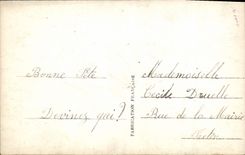 Bonne Fête
Devinez qui?
FABRICATION FRANÇAISE
Mademoiselle
Cécile Druelle
Rue de la Mairie